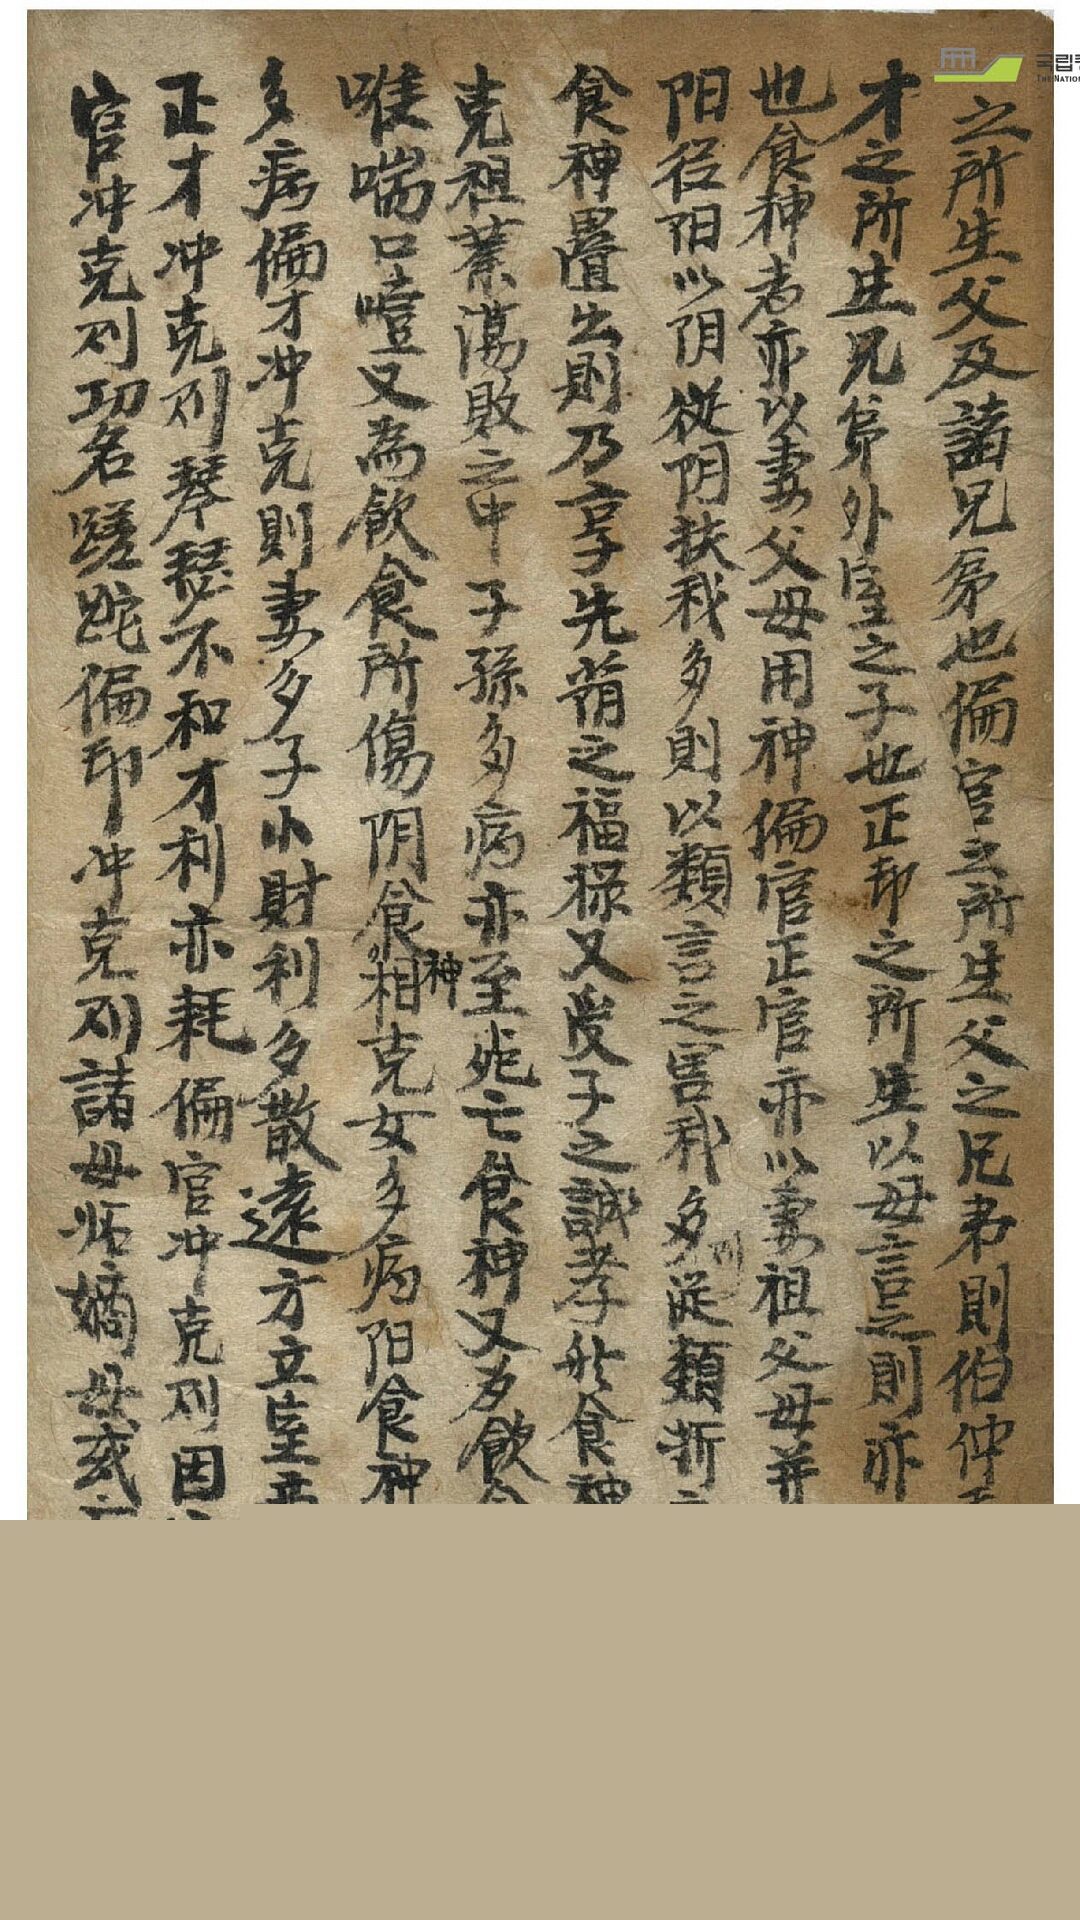 之所生父及諸兄弟也偏官之所生父之兄弟則伯仲
才之所生兄弟外室之子也正印之所生以母言之則亦
也食神者亦以妻父母用神偏官正官亦以妻祖父母并
阳從阳以阴從阴扶我多則以類言之害我多則從類折
食神疊出則乃享先蔭之福祿又受子之誠孝於食神
克祖業蕩敗之中子孫多病亦至死亡食神又为飲
唯喘口噎又為飮食所傷阴食神相克女多病阳食神
多病偏才冲克則妻多子小財利多散遠方立室
正才冲克則琴瑟不和才利亦耗偏官冲克則因
官冲克則功名蹉跎偏印冲克則諸母妬嫡母或
국립
THE NATION